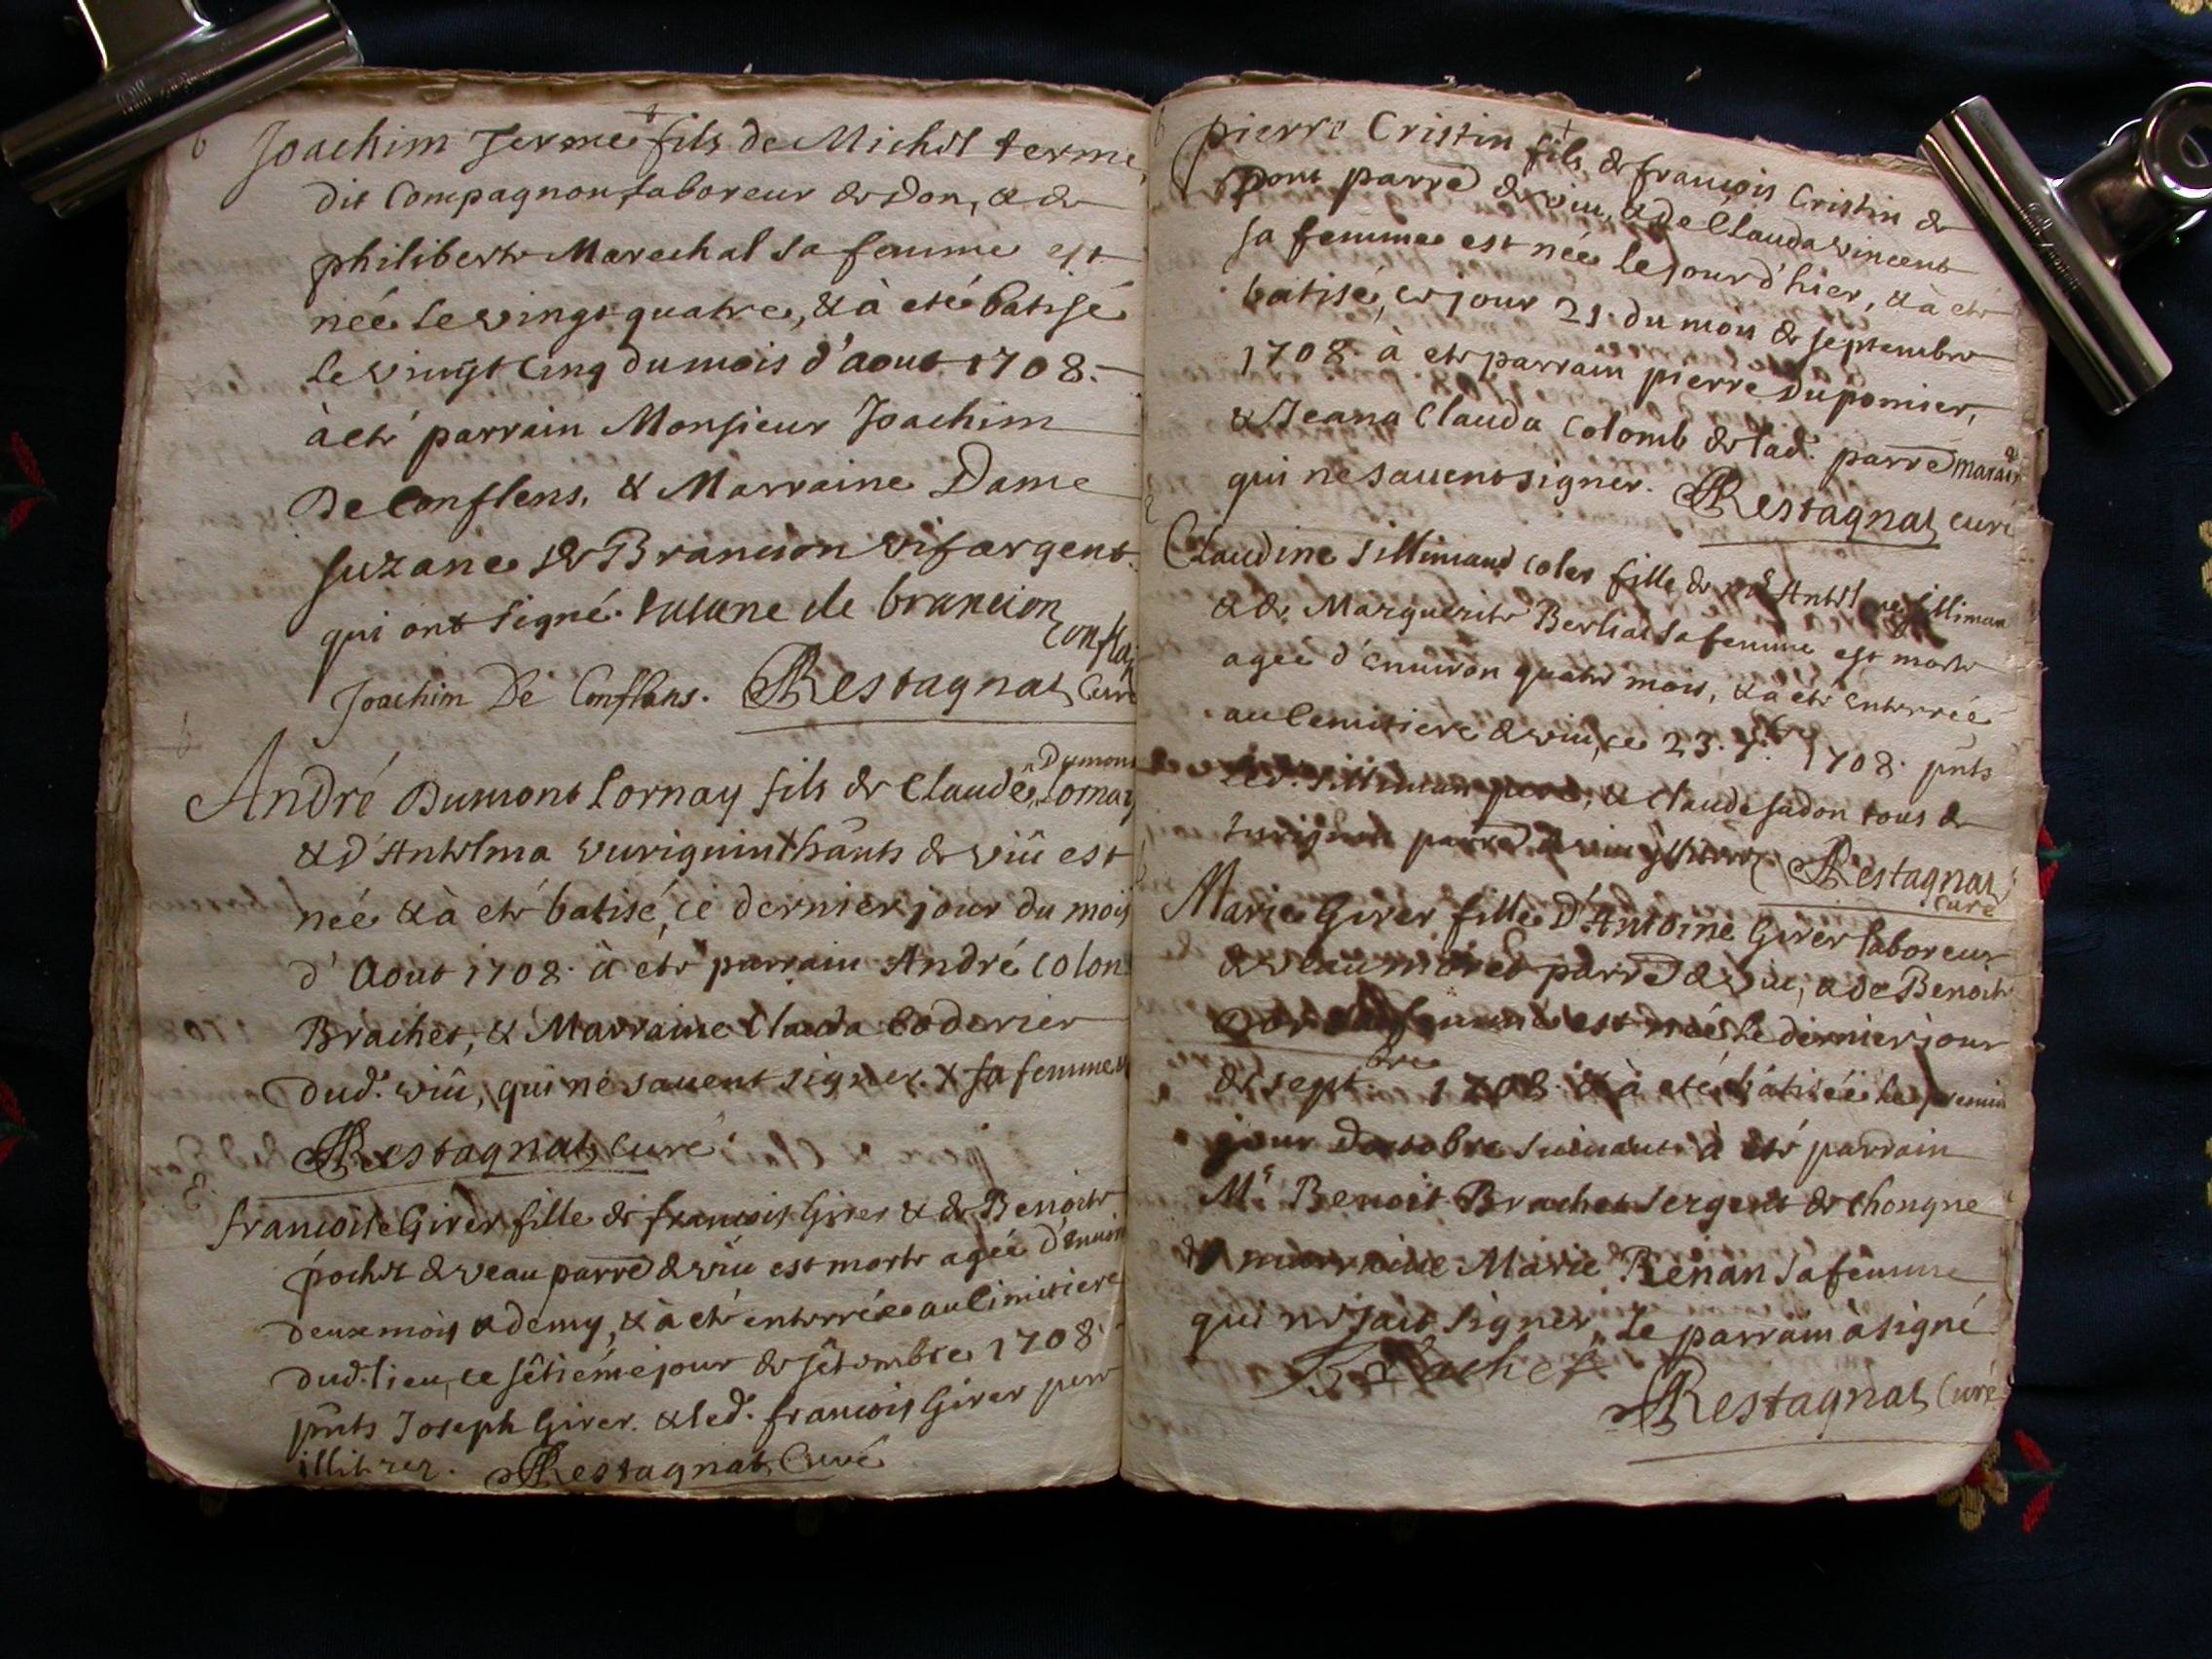 Joachim Jerme fils de Michel terme
dit Compagnon laboreur de Don, & de
philiberte Marechal sa femme est
née le vingt quatre, & à eté batisé
le vingt cinq du mois d'aout 1708.
à eté parrain Monsieur Joachim
De Conflens, & Marraine Dame
suzane de Brancion vifargent.
qui ont signé. susane de brancion
Joachim De Conflans. Restagnat Curé
André Dumont Lornay fils de Claude Dumont Lornay
& d'Antelma vuriguin hânts de viû est
née & à eté batisé, ce dernier jour du mois
d'Aout 1708. à eté parrain André Colon
Brachet, & Marraine Clauda Boderier
dud. viû, qui ne savent signer. X sa femme
Restagnat, curé
francoise Girer fille de francois Girer & de Benoite
pochet de veau parre de viu est morte agée d'enuiron
deux mois & demy, & à eté enterrée au Cimitiere
dud. lieu, ce sêtiéme jour de sêtembre 1708
pnts Joseph Girer. & led. francois Girer pere
illitrez. Restagnat, Curé
pierre Cristin fils de francois Cristin de
pont parre de viu, & de Clauda vincent
sa femme est née le jour d'hier, & à eté
batisé, ce jour 21. du mois de septembre
1708. à eté parrain pierre Dupomier,
& Jeana Clauda Colomb de lad. parre maraine
qui ne savent signer. Restagnat curé
Claudine sillimand fille de Antel
& de Marguerite Berliat sa femme est morte
agée d'enuiron quatre mois, & à eté enterrée
au Cemitiere de viu, ce 23. 7bre 1708. pnts
led. silliman pere, & Claude sadon tous de
parre de viu Restagnat
curé
Marie Girer fille D'Antoine Girer laboreur
de veau parre de viu, & de Benoite
sa femme est née le dernier jour
de septbre 1708. & à eté bâtisée le premier
jour D'octobre suiuant à eté parrain
Mr Benoit Brachet sergent de Chongne
& marraine Marie Renan sa femme
qui ne sait signer, le parrain à signé
Brachet
Restagnat Curé